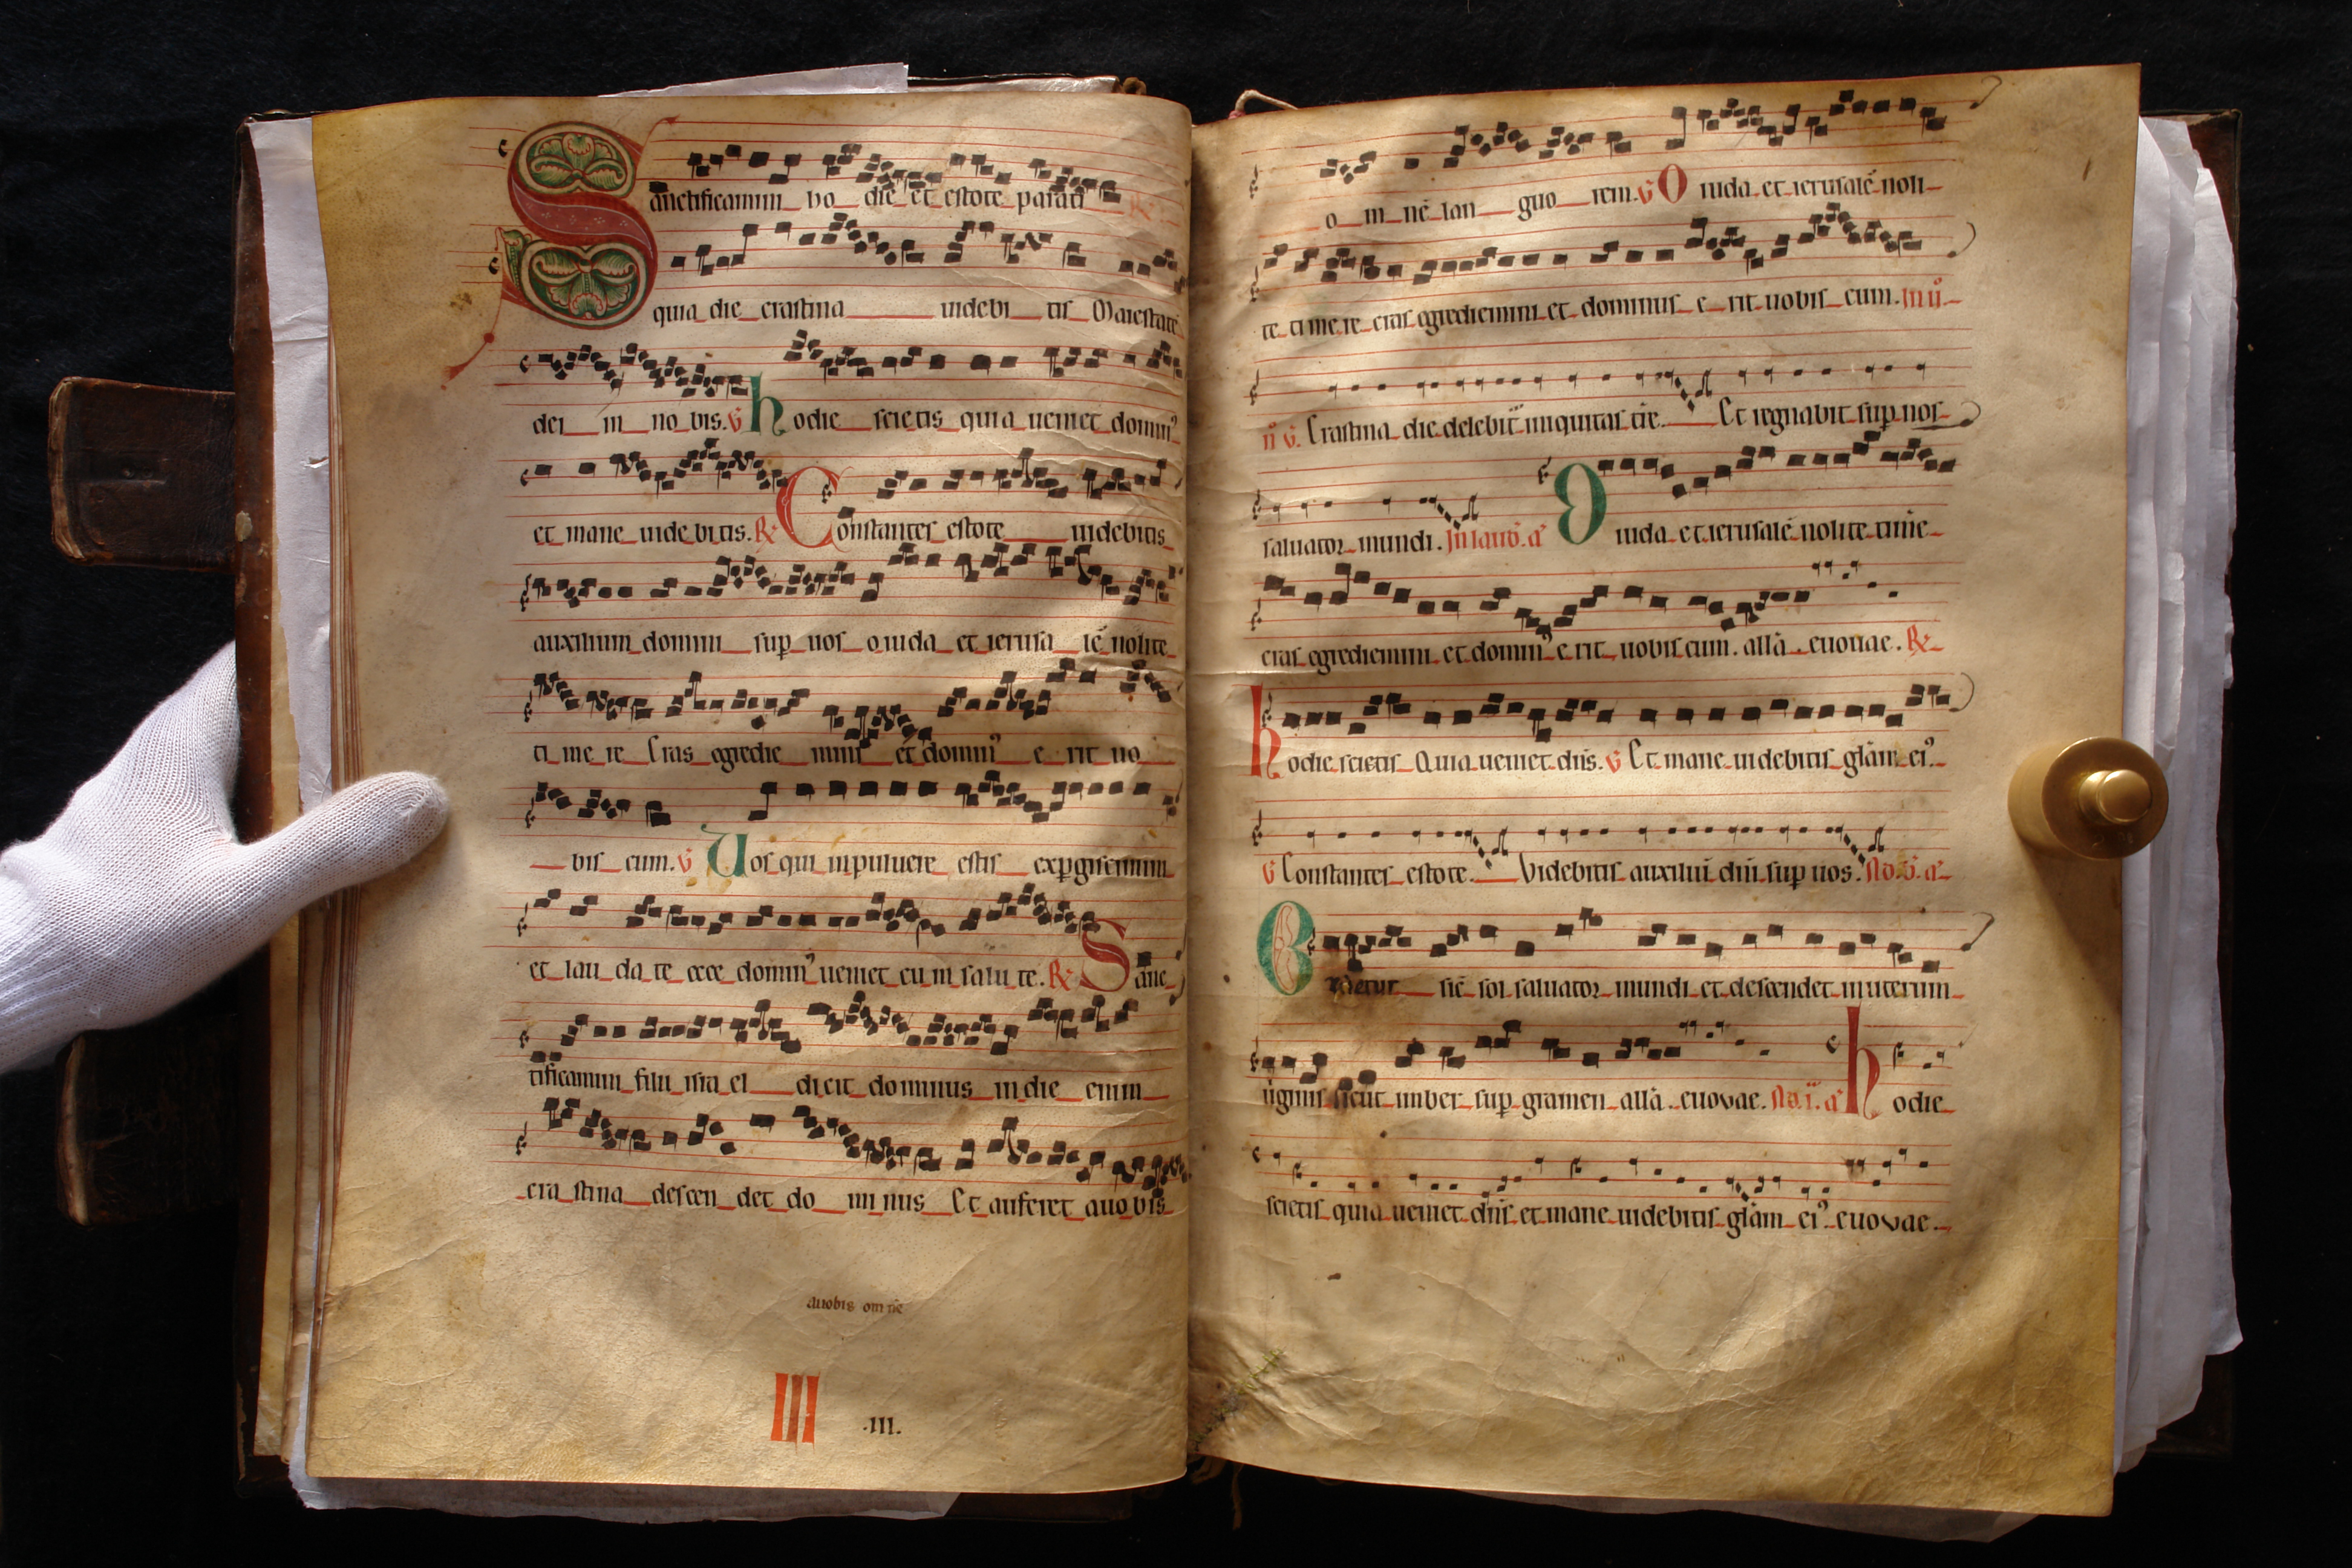 Sanctificamini ho die et estote parati
quia die crastina uidebi tis Maiestatē
dei in no bis. ℣ hodie scietis quia ueniet domin᷒
et mane uide bitis. ℟ Constantes estote uidebitis
auxilium domini sup uos o iuda et ierusa lē nolite
ti me re Cras egredie mini et domin᷒ e rit uo
bis cum. ℣ Uos qui in puluere estis expgiscimini
et lau da te ecce domin᷒ ueniet cu m salu te. ℟ Sanc
tificamini filii isra el dicit dominus in die enim
cra stina descen det do mi nus Et auferet a uo bis
auobis om nē
III .III.
o m nē lan guo rem. ℣ O iuda et ierusalē noli
te ti me re cras egrediemini et dominus e rit uobis cum.
℣. Crastina die delebit iniquitas tr̄e Et regnabit sup nos
saluator mundi. In laud. a᷒ O iuda et ierusalē nolite timē
cras egrediemini et domin᷒ e rit uobis cum. all̄a. euouae. ℟
hodie scietis Quia ueniet dn̄s. ℣ Et mane uidebitis gl̄am ei᷒.
℣ Constantes estote. Videbitis auxiliū dn̄i sup uos.
Orietur sic̄ sol saluator mundi et descendet in uterum
uirginis sicut imber sup gramen all̄a. euovae. hodie
scietis quia ueniet dn̄s et mane uidebitis gl̄am ei᷒. euovae.